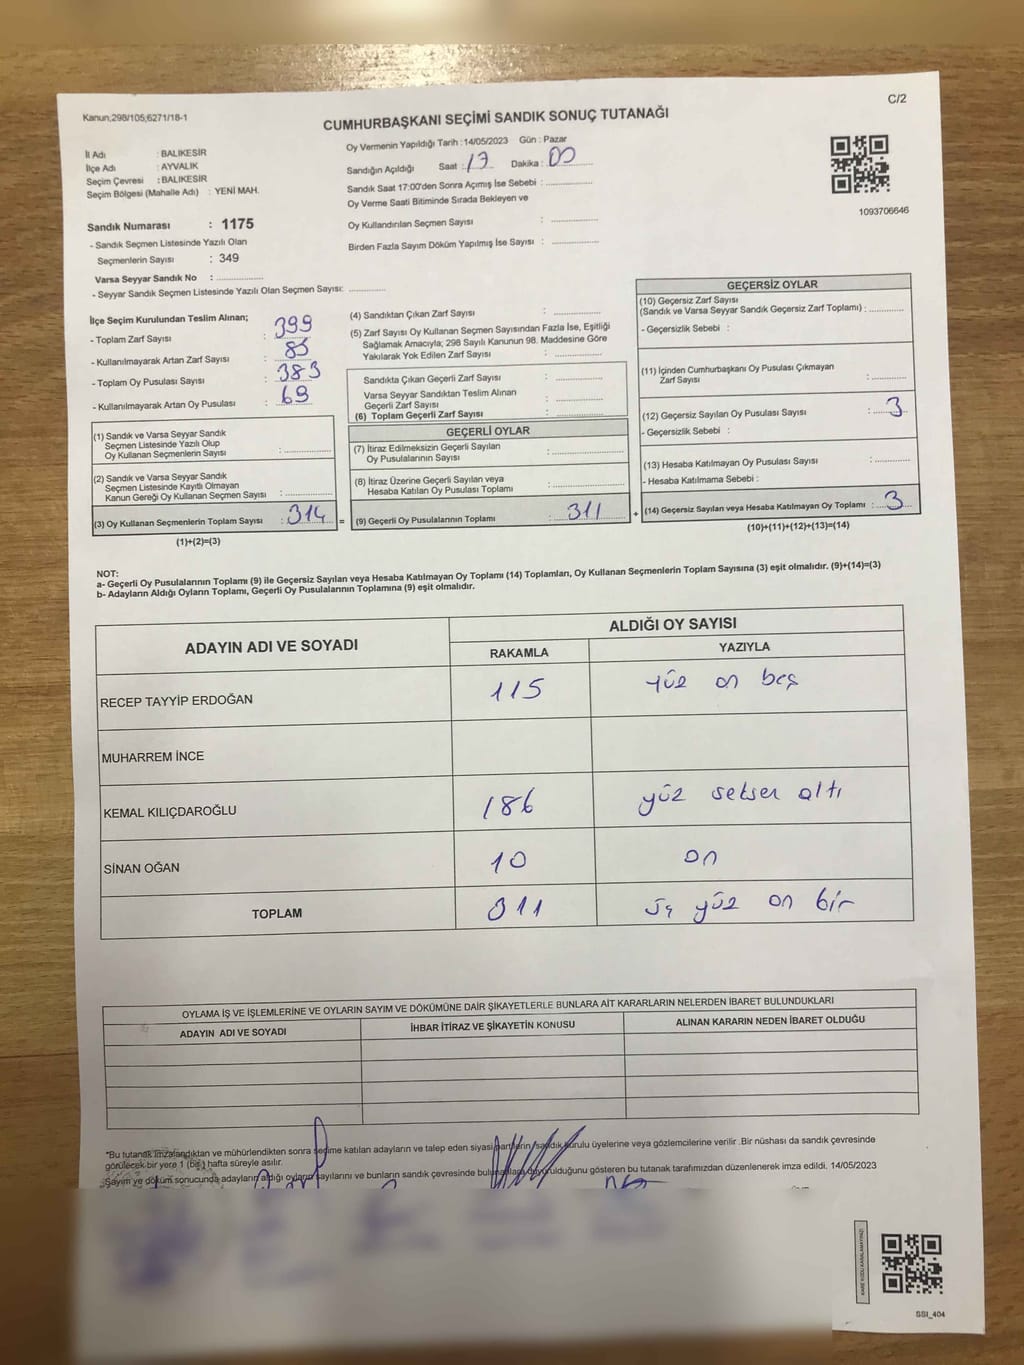 C/2
Kanun;298/105;6271/18-1
CUMHURBAŞKANI SEÇİMİ SANDIK SONUÇ TUTANAĞI
İl Adı : BALIKESİR
İlçe Adı : AYVALIK
Seçim Çevresi : BALIKESİR
Seçim Bölgesi (Mahalle Adı) : YENİ MAH.
Oy Vermenin Yapıldığı Tarih :14/05/2023 Gün : Pazar
Sandığın Açıldığı Saat : 17 Dakika : 00
Sandık Saat 17:00'den Sonra Açımış İse Sebebi : ..............
Oy Verme Saati Bitiminde Sırada Bekleyen ve
Oy Kullandırılan Seçmen Sayısı : ..............
Birden Fazla Sayım Döküm Yapılmış İse Sayısı : ..............
1093706646
Sandık Numarası : 1175
- Sandık Seçmen Listesinde Yazılı Olan
Seçmenlerin Sayısı : 349
Varsa Seyyar Sandık No : ..............
- Seyyar Sandık Seçmen Listesinde Yazılı Olan Seçmen Sayısı: ..............
İlçe Seçim Kurulundan Teslim Alınan;
- Toplam Zarf Sayısı : 399
- Kullanılmayarak Artan Zarf Sayısı : 85
- Toplam Oy Pusulası Sayısı : 383
- Kullanılmayarak Artan Oy Pusulası : 69
(1) Sandık ve Varsa Seyyar Sandık
Seçmen Listesinde Yazılı Olup
Oy Kullanan Seçmenlerin Sayısı : ..............
(2) Sandık ve Varsa Seyyar Sandık
Seçmen Listesinde Kayıtlı Olmayan
Kanun Gereği Oy Kullanan Seçmen Sayısı : ..............
(3) Oy Kullanan Seçmenlerin Toplam Sayısı : 314 =
(1)+(2)=(3)
(4) Sandıktan Çıkan Zarf Sayısı : ..............
(5) Zarf Sayısı Oy Kullanan Seçmen Sayısından Fazla İse, Eşitliği
Sağlamak Amacıyla; 298 Sayılı Kanunun 98. Maddesine Göre
Yakılarak Yok Edilen Zarf Sayısı : ..............
Sandıkta Çıkan Geçerli Zarf Sayısı : ..............
Varsa Seyyar Sandıktan Teslim Alınan
Geçerli Zarf Sayısı : ..............
(6) Toplam Geçerli Zarf Sayısı : ..............
GEÇERLİ OYLAR
(7) İtiraz Edilmeksizin Geçerli Sayılan
Oy Pusulalarının Sayısı : ..............
(8) İtiraz Üzerine Geçerli Sayılan veya
Hesaba Katılan Oy Pusulası Toplamı : ..............
(9) Geçerli Oy Pusulalarının Toplamı : 311 +
GEÇERSİZ OYLAR
(10) Geçersiz Zarf Sayısı
(Sandık ve Varsa Seyyar Sandık Geçersiz Zarf Toplamı) : ..............
- Geçersizlik Sebebi :
(11) İçinden Cumhurbaşkanı Oy Pusulası Çıkmayan
Zarf Sayısı : ..............
(12) Geçersiz Sayılan Oy Pusulası Sayısı : 3
- Geçersizlik Sebebi :
(13) Hesaba Katılmayan Oy Pusulası Sayısı : ..............
- Hesaba Katılmama Sebebi :
(14) Geçersiz Sayılan veya Hesaba Katılmayan Oy Toplamı : 3
(10)+(11)+(12)+(13)=(14)
NOT:
a- Geçerli Oy Pusulalarının Toplamı (9) ile Geçersiz Sayılan veya Hesaba Katılmayan Oy Toplamı (14) Toplamları, Oy Kullanan Seçmenlerin Toplam Sayısına (3) eşit olmalıdır. (9)+(14)=(3)
b- Adayların Aldığı Oyların Toplamı, Geçerli Oy Pusulalarının Toplamına (9) eşit olmalıdır.
ADAYIN ADI VE SOYADI ALDIĞI OY SAYISI
RAKAMLA YAZIYLA
RECEP TAYYİP ERDOĞAN 115 yüz on beş
MUHARREM İNCE
KEMAL KILIÇDAROĞLU 186 yüz seksen altı
SİNAN OĞAN 10 on
TOPLAM 311 üç yüz on bir
OYLAMA İŞ VE İŞLEMLERİNE VE OYLARIN SAYIM VE DÖKÜMÜNE DAİR ŞİKAYETLERLE BUNLARA AİT KARARLARIN NELERDEN İBARET BULUNDUKLARI
ADAYIN ADI VE SOYADI İHBAR İTİRAZ VE ŞİKAYETİN KONUSU ALINAN KARARIN NEDEN İBARET OLDUĞU
*Bu tutanak imzalandıktan ve mühürlendikten sonra seçime katılan adayların ve talep eden siyasi partilerin sandık kurulu üyelerine veya gözlemcilerine verilir .Bir nüshası da sandık çevresinde
görülecek bir yere 1 (bir) hafta süreyle asılır.
Sayım ve döküm sonucunda adayların aldığı oyların sayılarını ve bunların sandık çevresinde olduğunu gösteren bu tutanak tarafımızdan düzenlenerek imza edildi. 14/05/2023
KARE KODU KARALAMAYINIZ!
SSI_404